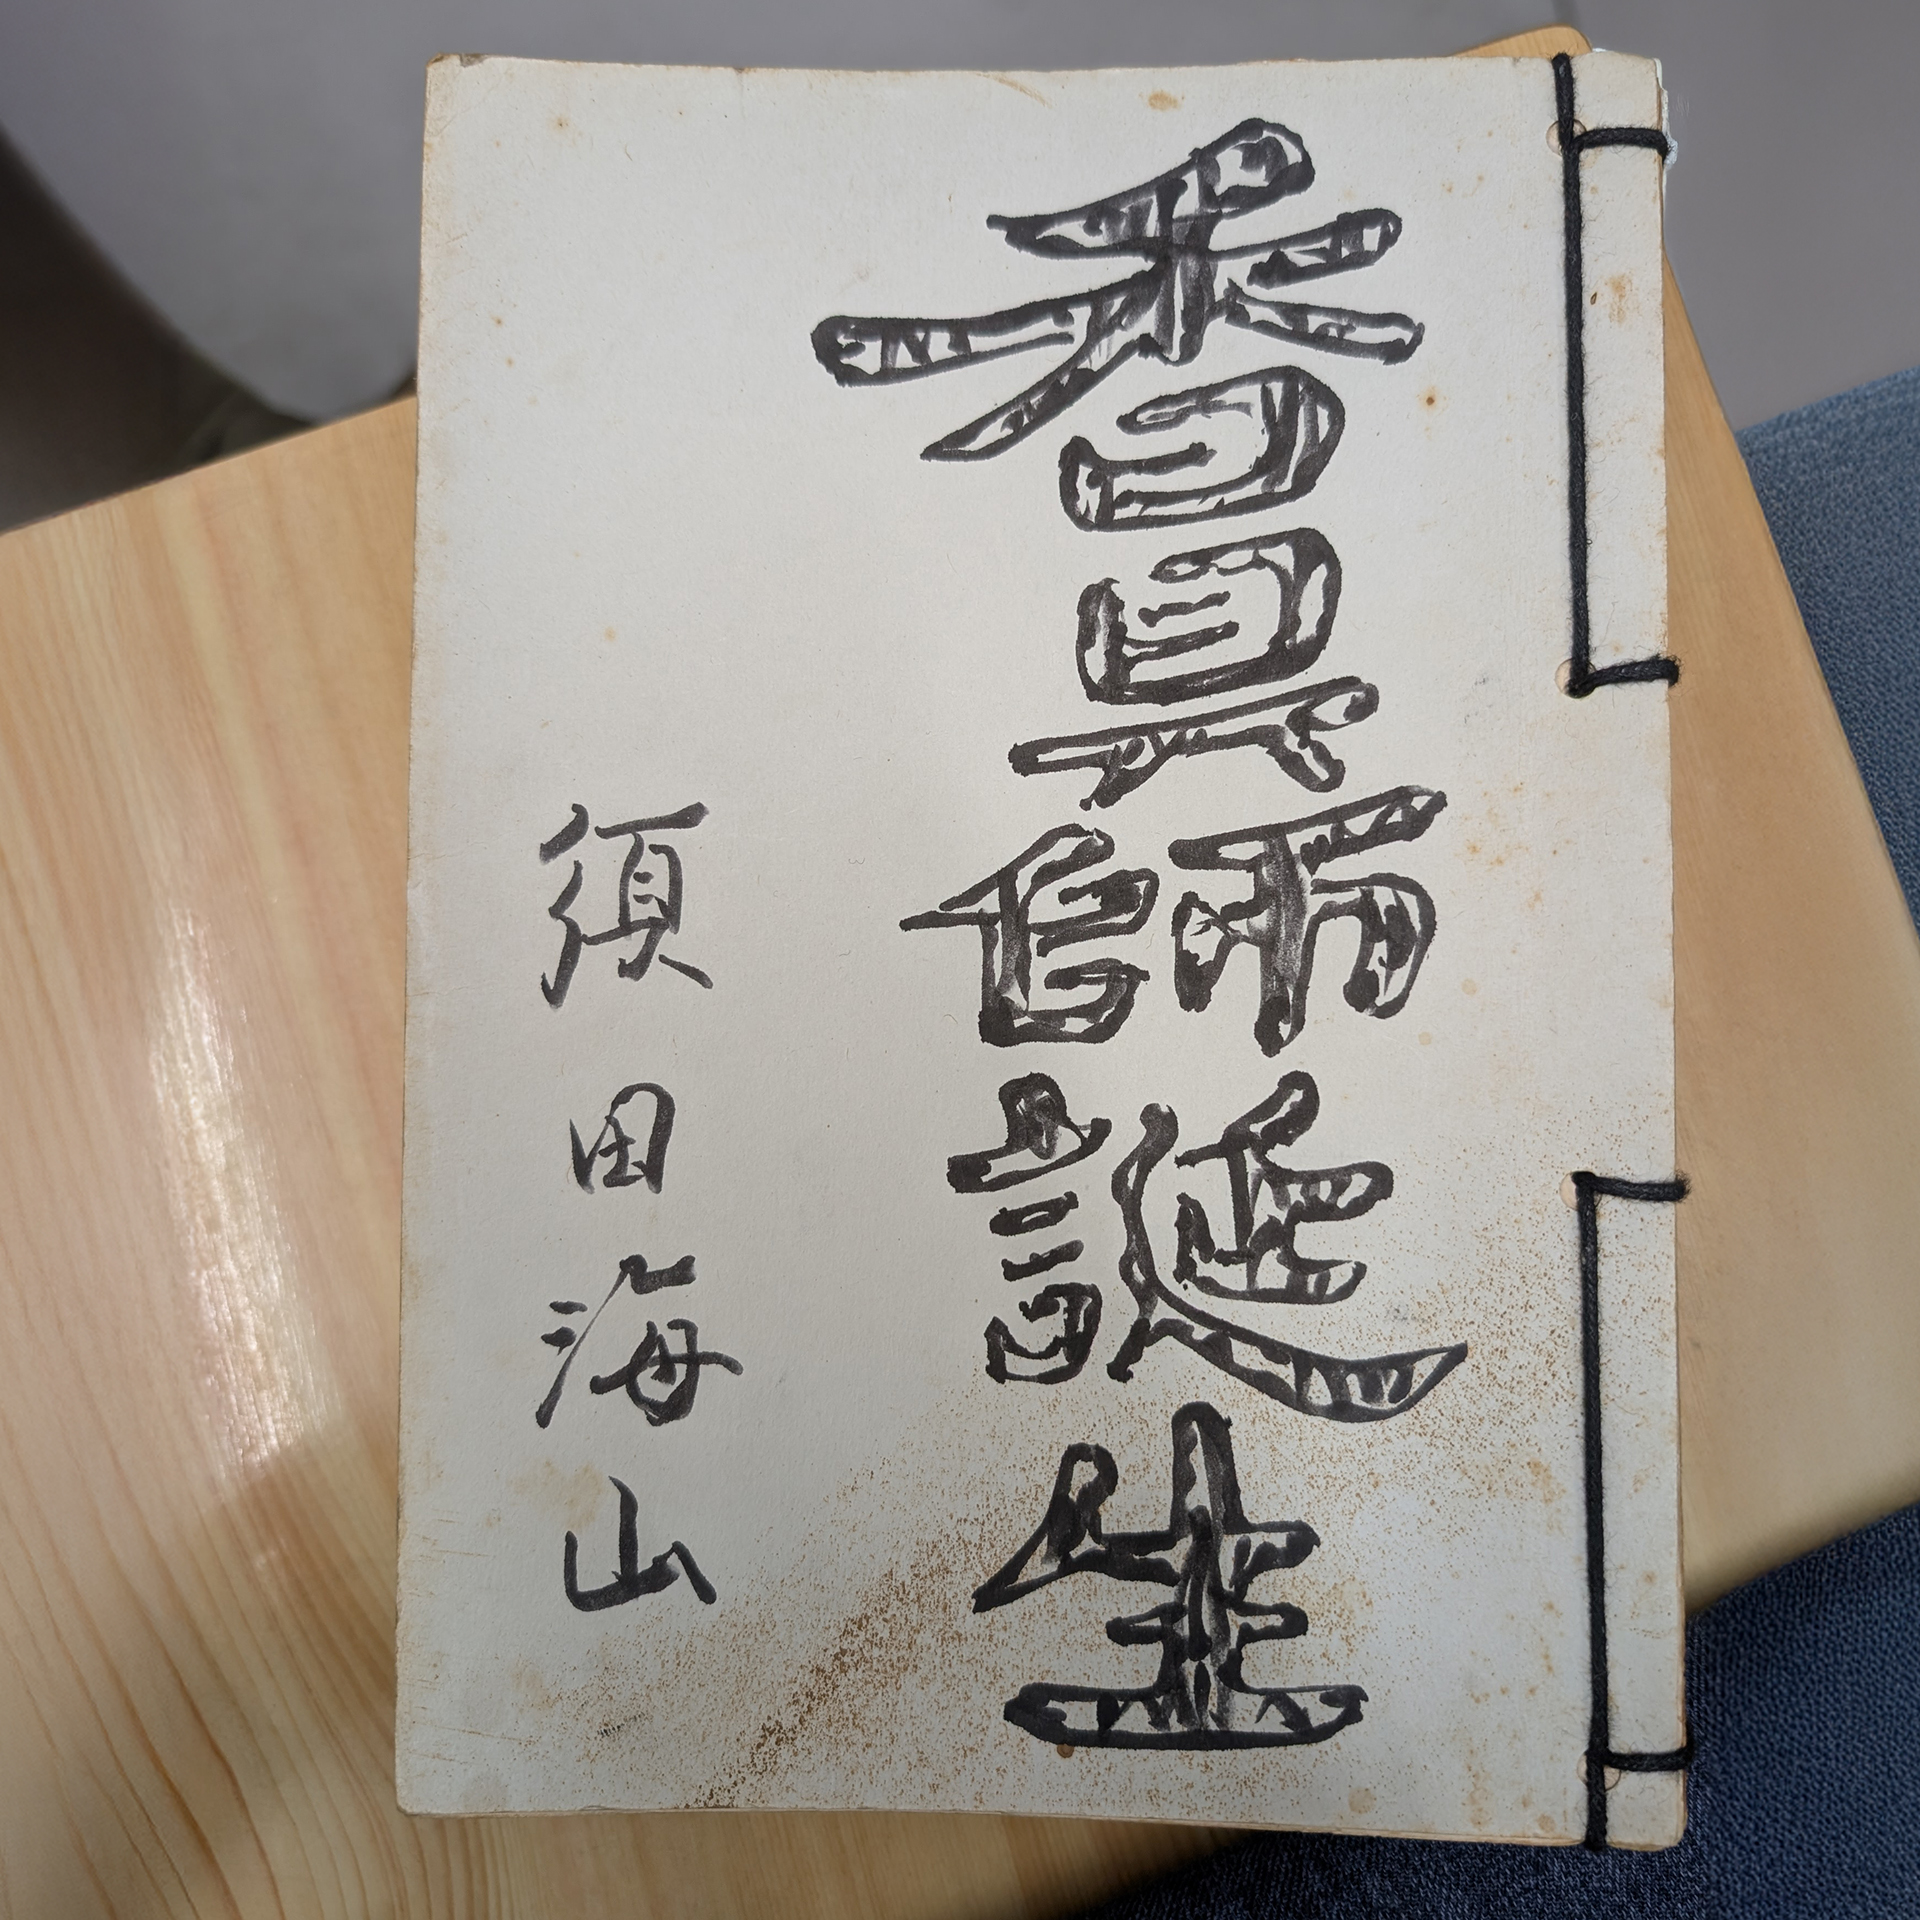 香具師誕生
須田海山